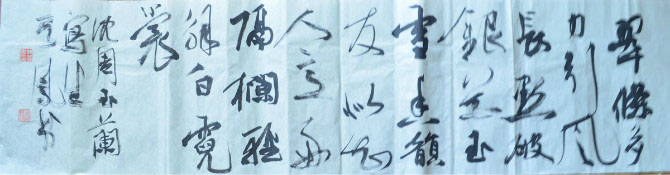 翠條多
力引風
長點破
銀花玉
雪香韻
友似知
人意好
隔欄輕
解白霓
裳
沈周玉蘭